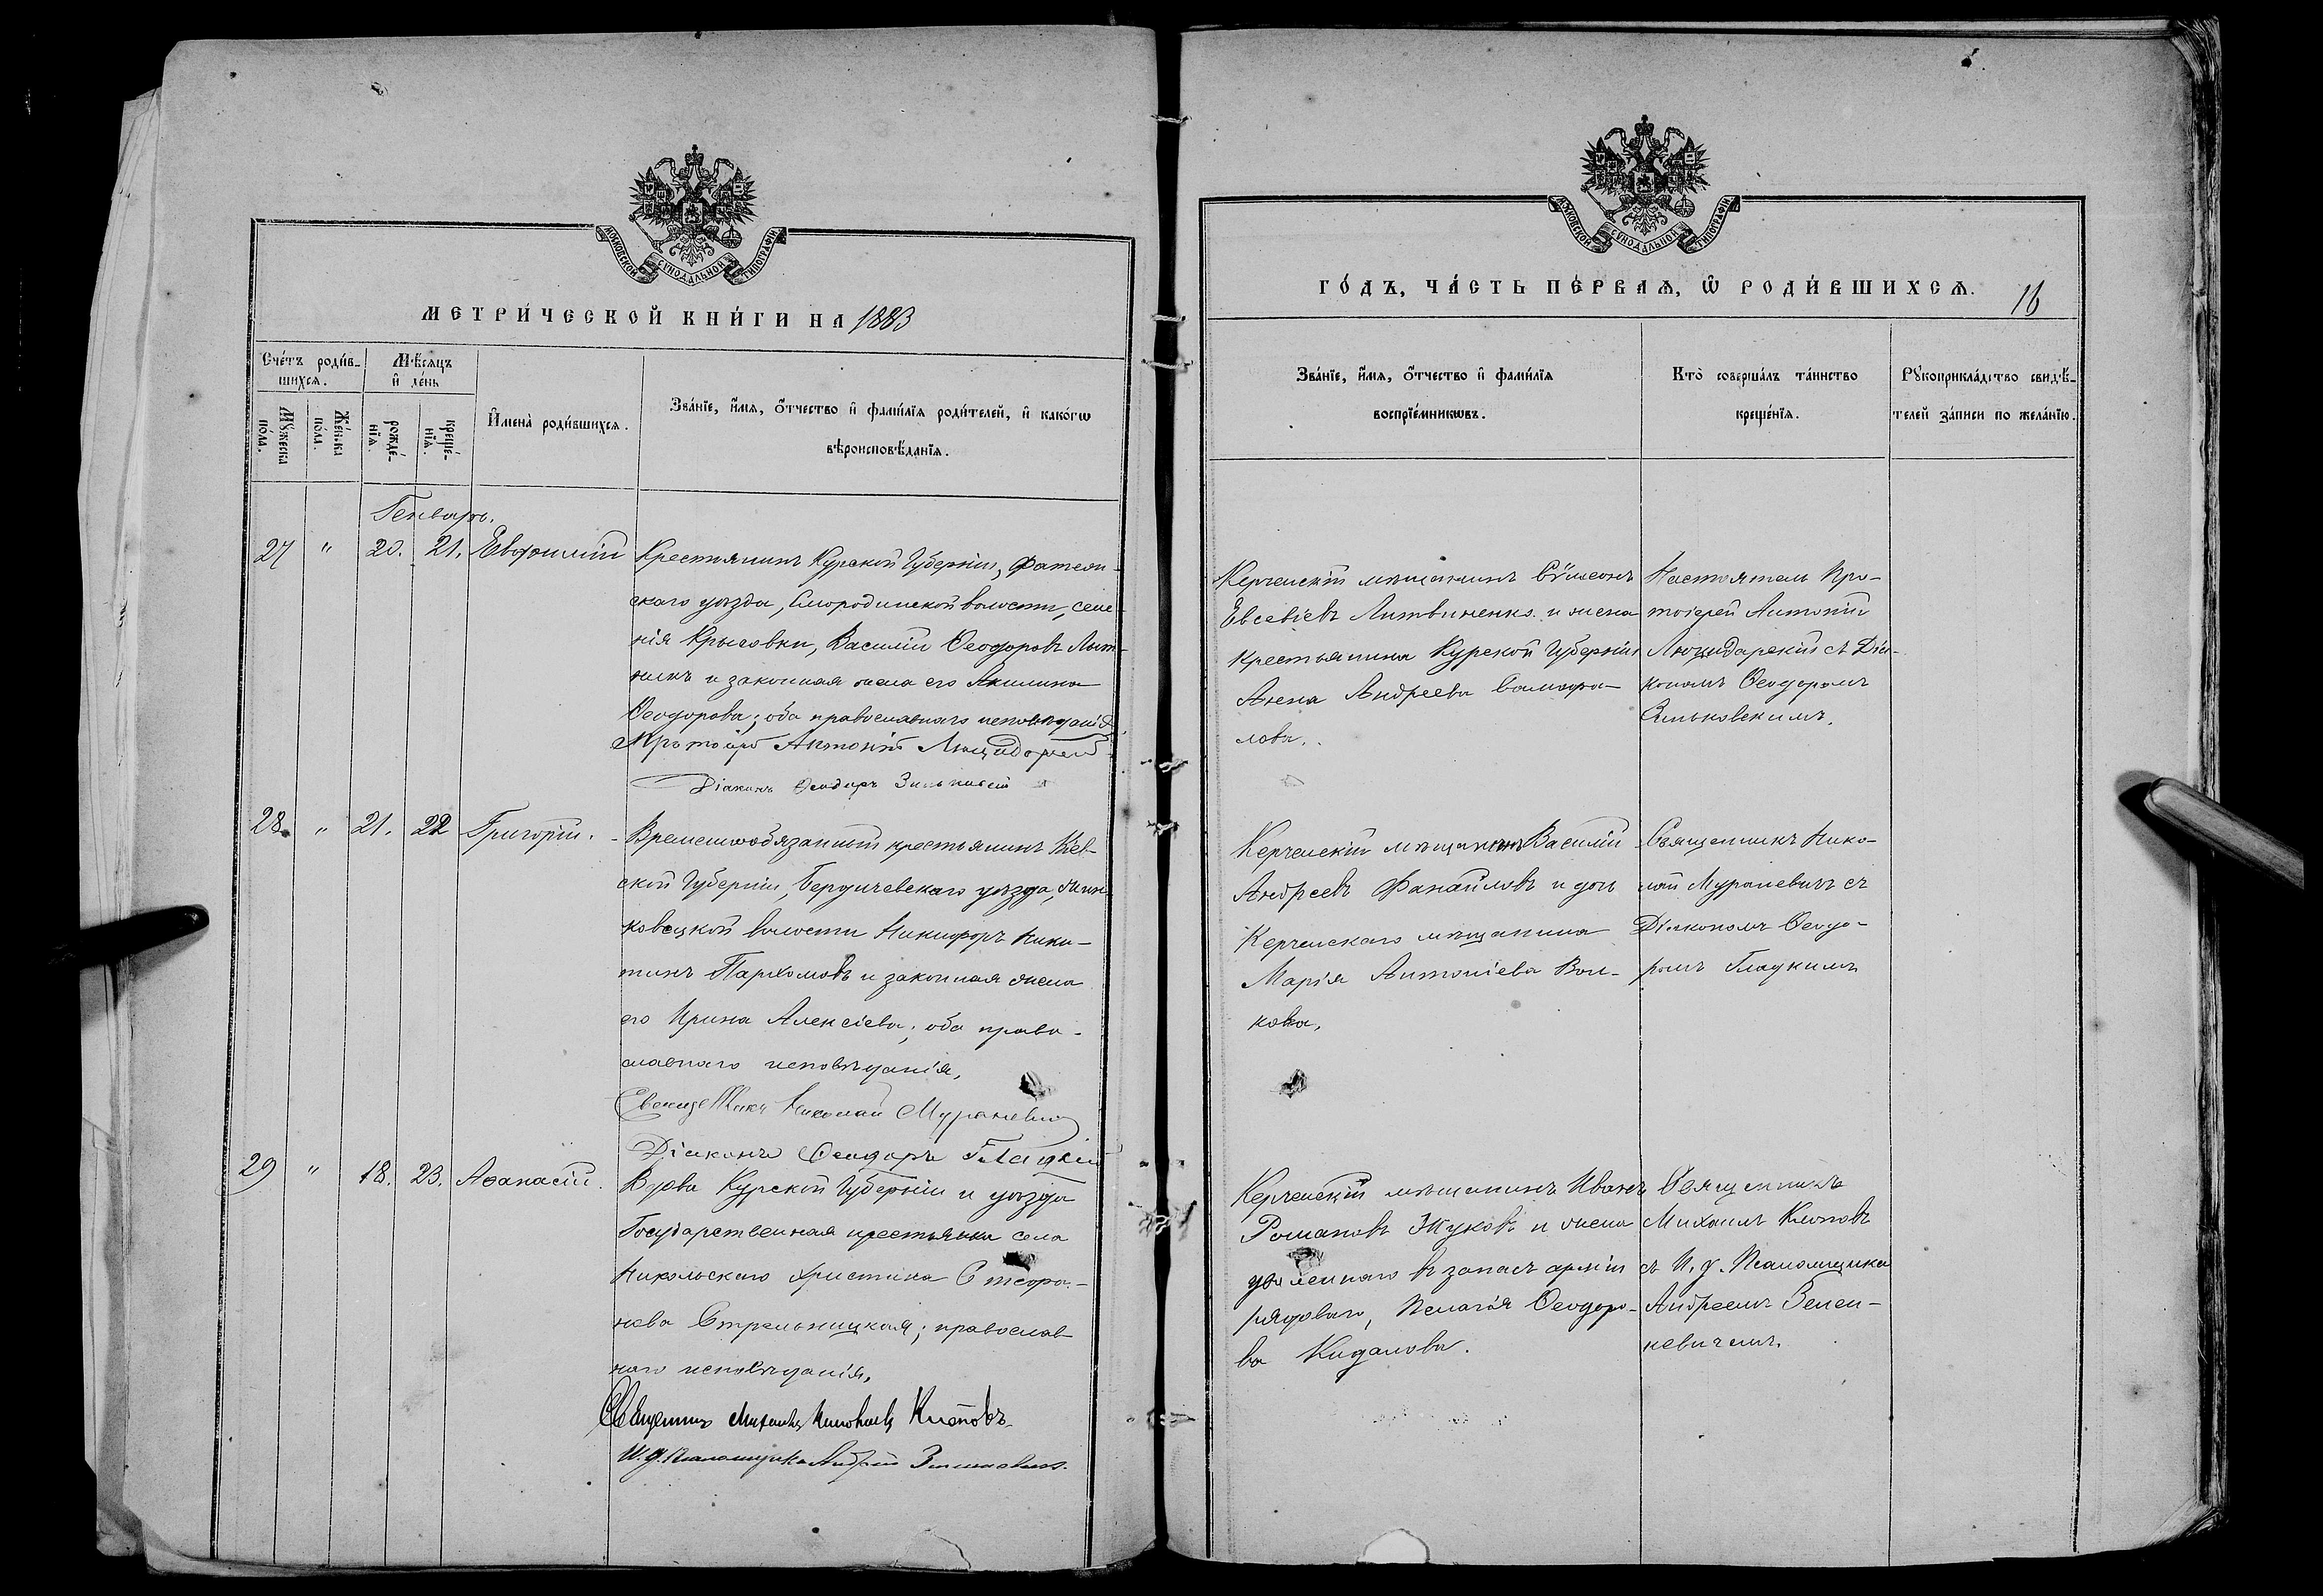 МОСКОВСКОЙ СѴНОДАЛЬНОЙ ТИПОГРАФІИ
МЕТРИ́ЧЕСКОЙ КНИ́ГИ НА 1883
Сче́тъ роди́в-
шихсѧ.
Мꙋ́жеска
по́ла.
Же́нска
по́ла.
Мѣ́сѧцъ
и҆ де́нь
рожде́-
нїѧ.
креще́-
нїѧ.
И҆мена̀ роди́вшихсѧ.
Зва́нїе, и҆́мѧ, ѻ҆́тчество и҆ фами́лїѧ роди́телей, и҆ како́гѡ
вѣроисповѣ́данїѧ.
Генварь.
27 " 20. 21. Евфимій
Крестьянинъ Курской Губерніи, Фатеж-
скаго уѣзда, Смородинской волости, селе-
нія Крысовки, Василій Ѳеодоровъ
и законная жена его Акилина
Ѳеодорова; оба православнаго исповѣданія
Протоіерей Антоній
Діаконъ Ѳеодоръ Зиньковскій
28. " 21. 22 Григорій.
Временнообязанный крестьянинъ Кіев-
ской Губерніи, Бердичевскаго уѣзда,
волости Никифоръ Ники-
тинъ Пархомовъ и законная жена
его Ирина Алексіева; оба право-
славнаго исповѣданія,
Священникъ Николай Мураневичъ
Діаконъ Ѳеодоръ Гладкій
29 " 18. 23. Аѳанасій.
Вдова Курской Губерніи и уѣзда
Государственная крестьянка села
Никольскаго Христина Стефа-
нова Стрельницкая; православ
наго исповѣданія,
Священникъ Михаилъ Клоповъ
И. д. Псаломщика Андрей
МОСКОВСКОЙ СѴНОДАЛЬНОЙ ТИПОГРАФІИ
ГО́ДЪ, ЧА́СТЬ ПЕ́РВАѦ, Ѡ҆ РОДИ́ВШИХСѦ. 16
Зва́нїе, и҆́мѧ, ѻ҆́тчество и҆ фами́лїѧ
воспрїе́мникѡвъ.
Кто̀ соверша́лъ та́инство
креще́нїѧ.
Рꙋкоприкла́дство свидѣ́-
телей за́писи по жела́нїю.
Керченскій мѣщанинъ Сѵмеонъ
Евсевіевъ Литвиненко и жена
крестьянина Курской Губерніи
Анна Андреева Самофа-
лова.
Настоятель Про-
тоіерей Антоній
съ Діа-
кономъ Ѳеодоромъ
Зиньковскимъ.
Керченскій мѣщанинъ Василій
Андреевъ Фанаиловъ и дочь
Керченскаго мѣщанина
Марія Антоніева Вол-
кова,
Священникъ Нико-
лай Мураневичъ съ
Діакономъ Ѳеодо-
ромъ Гладкимъ
Керченскій мѣщанинъ Иванъ
Романовъ Жуковъ и жена
уволеннаго въ запасъ арміи
рядоваго, Пелагія Ѳеодоро-
ва Кидалова.
Священникъ
Михаилъ Клоповъ
съ И. д. Псаломщика
Андреемъ Зелен-
кевичемъ.